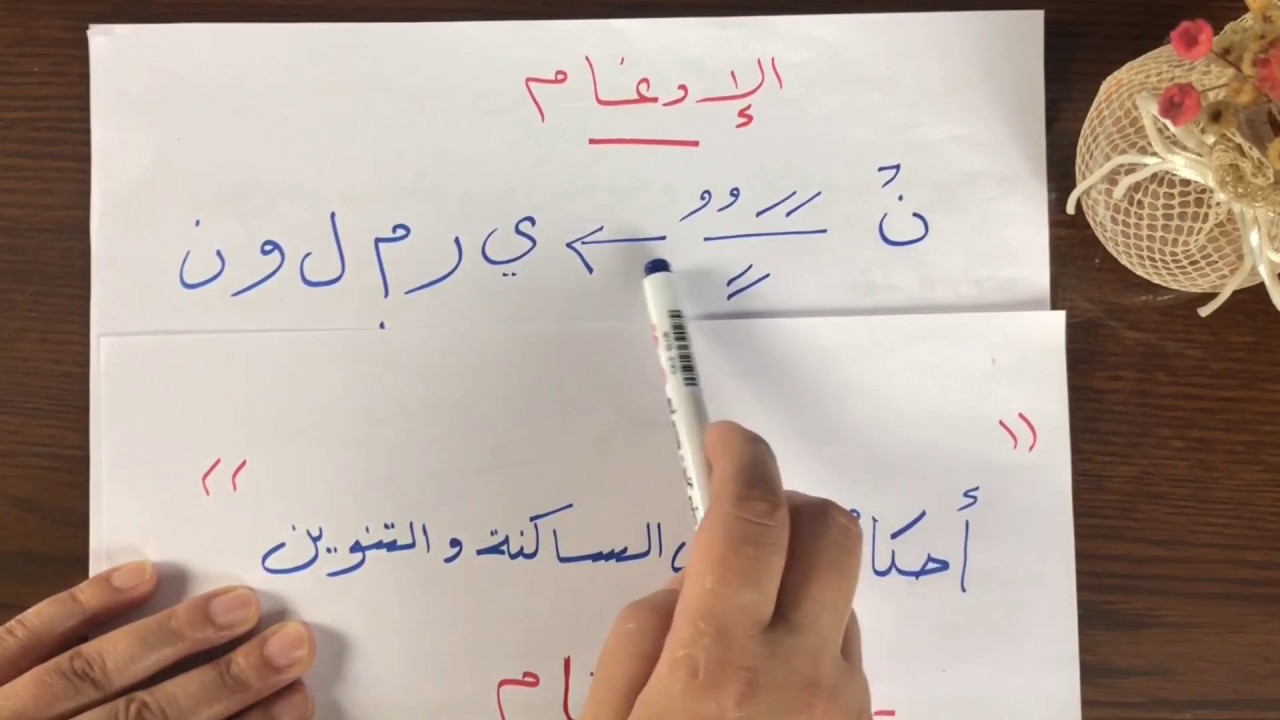 الإدغام
نْ ـًـٍـٌ ← ي ر م ل و ن
" أحكام الساكنة والتنوين "